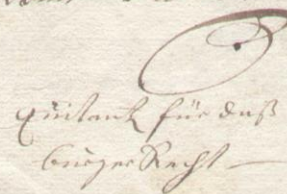 Quitantz für daß
burger Recht